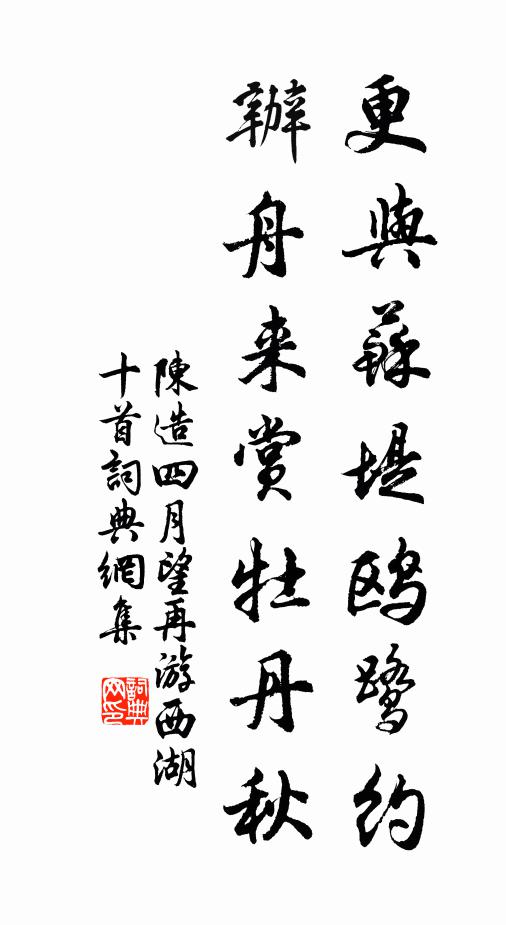 更與蘇堤鷗鷺約
辦舟来賞牡丹秋
陳造四月望再游西湖
十首詞典網集
詞典
网印